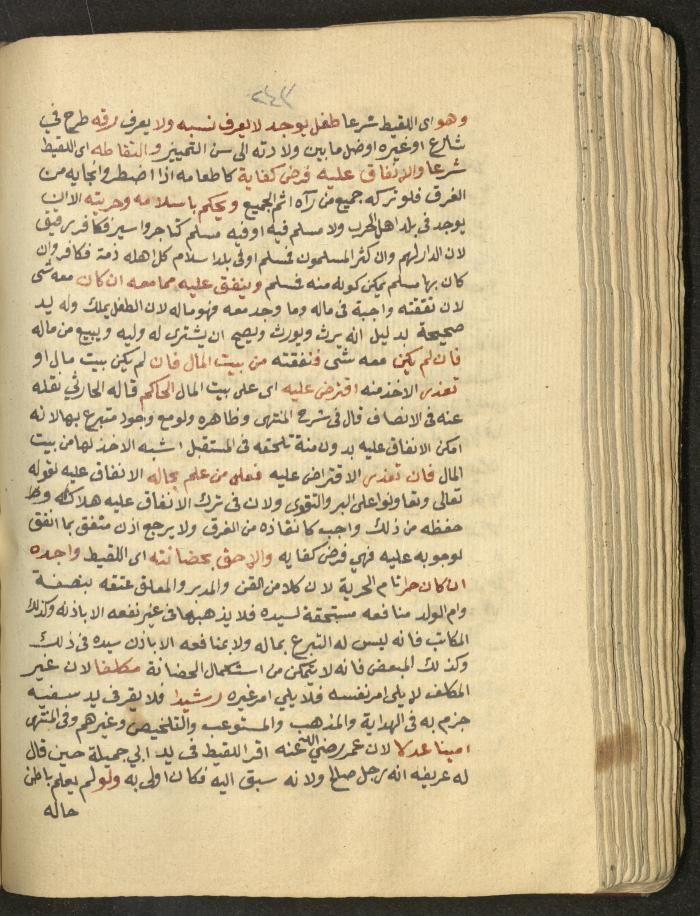 ٢٤٣
وهو اى اللقيط شرعا طفل يوجد لا يعرف نسبه ولا يعرف رقه طرح في
شارع او غيره او ضل ما بين ولادته الى سن التمييز والتقاطه اى اللقيط
شرعا والانفاق عليه فرض كفاية كاطعامه اذا اضطر وانجايه من
الغرق فلو تركه جميع من رآه اثم الجميع ويحكم باسلامه وحريته الا ان
يوجد في بلد اهل الحرب ولا مسلم فيه او فيه مسلم كتاجر واسير فكافر رقيق
لان الدار لهم وان كثر المسلمون فمسلم او في بلد اسلام كل اهله ذمة فكافر وان
كان بها مسلم يمكن كونه منه فمسلم وينفق عليه مما معه ان كان معه شى
لان نفقته واجبة في ماله وما وجد معه فهو ماله لان الطفل يملك وله يد
صحيحة بدليل انه يرث ويورث ويصح ان يشترى له وليه ويبيع من ماله
فان لم يكن معه شى فنفقته من بيت المال فان لم يكن بيت مال او
تعذر الاخذ منه اقترض عليه اى على بيت المال الحاكم قاله الحارثي نقله
عنه في الانصاف قال في شرح المنتهى وظاهره ولو مع وجود متبرع بها لانه
امكن الانفاق عليه بدون منة تلحقه في المستقبل اشبه الاخذ لها من بيت
المال فان تعذر الاقتراض عليه فعلى من علم بحاله الانفاق عليه لقوله
تعالى وتعاونوا على البر والتقوى ولان في ترك الانفاق عليه هلاكه و
حفظه من ذلك واجب كانقاذه من الغرق ولا يرجع اذن منفق بما انفق
لوجوبه عليه فهي فرض كفايه والاحق بحضانته اى اللقيط واجده
ان كان حرا تام الحرية لان كلا من القن والمدبر والمعلق عتقه بصفة
وام الولد منافعه مستحقة لسيده فلا يذهبها في غير نفعه الا باذنه وكذلك
المكاتب فانه ليس له التبرع بماله ولا بمنافعه الا باذن سيده في ذلك
وكذلك المبعض فانه لا يتمكن من استكمال الحضانة مكلفا لان غير
المكلف لا يلى امر نفسه فلا يلي امر غيره رشيدا فلا يقر في يد سفيه
جزم به في الهداية والمذهب والمستوعب والتلخيص وغيرهم وفي المنتهى
امينا عدلا لان عمر رضي الله عنه اقر اللقيط في يد ابي جميلة حين قال
له عريفه انه رجل صالح ولانه سبق اليه فكان اولى به ولو لم يعلم باطن
حاله